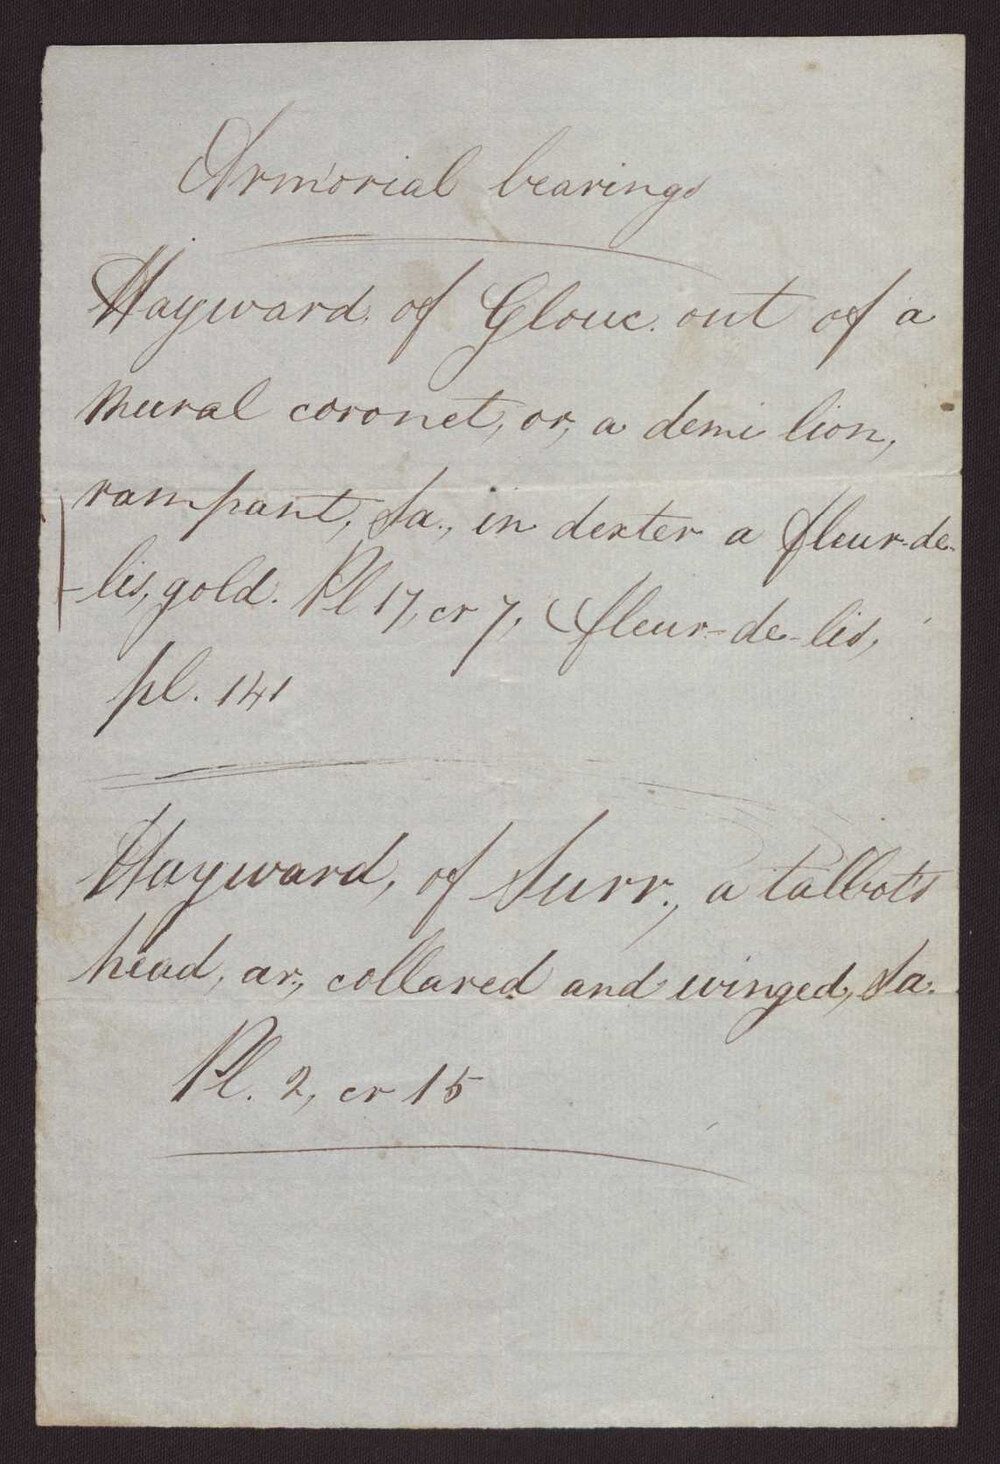 Armorial bearings
Hayward of Glouc. out of a
mural coronet, or, a demi lion,
rampant, Sa., in dexter a fleur-de-
-lis, gold. Pl 17, cr 7, (fleur-de-lis,
pl. 141
Hayward, of Surr., a talbots
head, ar., collared and winged, Sa.
Pl. 2, cr 15